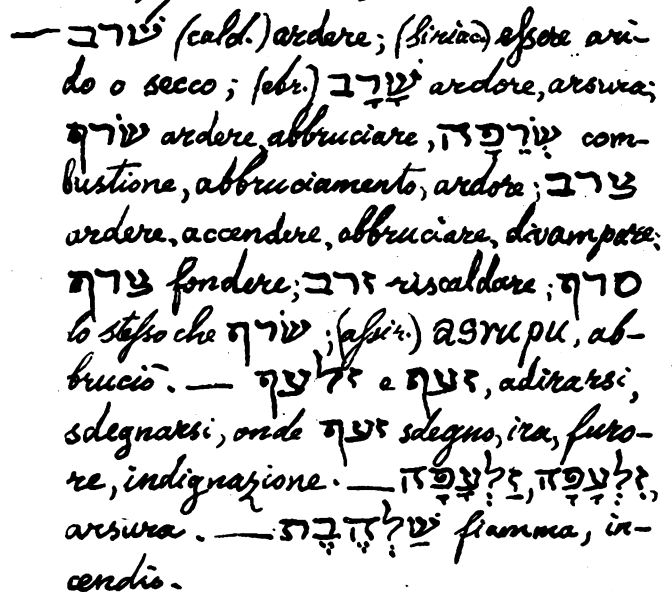 — שׁרב (cald.) ardere; (siriac.) essere ari-
do o secco; (ebr.) שָׁרָב ardore, arsura;
שׂרף ardere, abbruciare, שְׂרֵפָה com-
bustione, abbruciamento, ardore; צרב
ardere, accendere, abbruciare, divampare;
צרף fondere; זרב riscaldare; סרף
lo stesso che שׂרף; (assir.) asrupu, ab-
bruciò. — זלעף e זעף, adirarsi,
sdegnarsi, onde זעף sdegno, ira, furo-
re, indignazione. — זִלְעָפָה, זַלְעָפָה,
arsura. — שַׁלְהֶבֶת fiamma, in-
cendio.